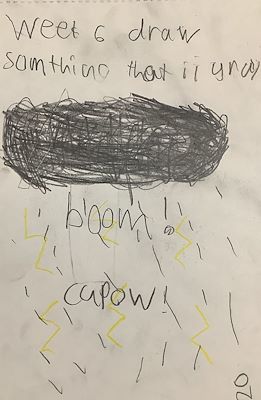 Week 6 draw
somthing that ii
boom!
capow!
20